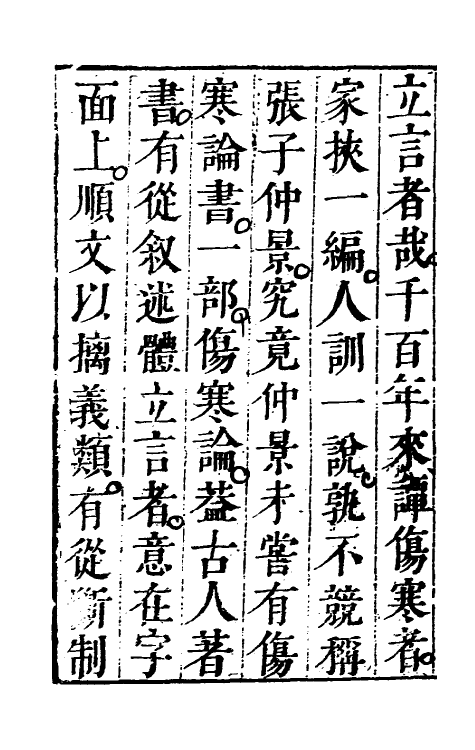 立言者哉。千百年來、譚傷寒者。
家挾一編。人訓一說、孰不競稱
張子仲景。究竟仲景未嘗有傷
寒論書。一部。傷寒論。葢古人著
書。有從叙述體立言者。意在字
面上。順文以摛義類。有從斷制